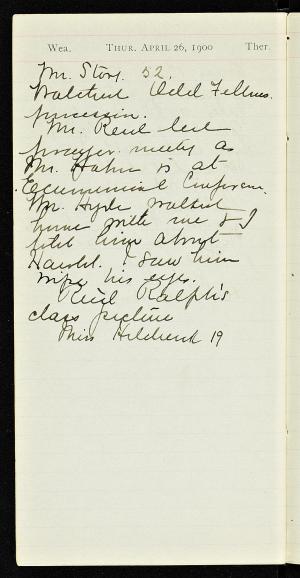 Wea. THUR. APRIL 26, 1900 Ther.
Mr. Story. 52.
Watched Odd Fellows.
procession.
Mr. Reid led
prayer meety as
Mr. Hahn is at
Ecumenical Conferen.
Mr. Hyde walked
home with me & I
told him about
Harold. I saw him
wipe his eyes.
Rec'd Ralph's
class picture
Miss Hildreth 19